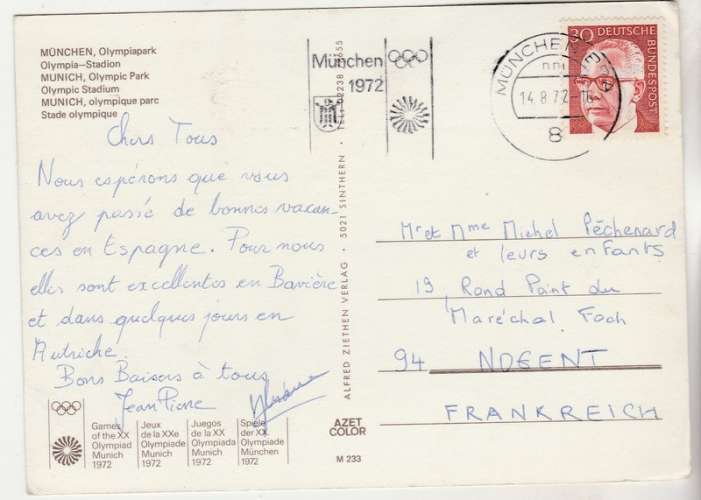 MÜNCHEN, Olympiapark
Olympia–Stadion
MUNICH, Olympic Park
Olympic Stadium
MUNICH, olympique parc
Stade olympique
München
1972
MÜNCHEN
14.8.72
8
30 DEUTSCHE
BUNDESPOST
Chers Tous
Nous espérons que vous
avez passé de bonnes vacan-
ces en Espagne. Pour nous
elles sont excellentes en Bavière
et dans quelques jours en
Autriche.
Bons Baisers à tous
Jean Pierre
ALFRED ZIETHEN VERLAG · 5021 SINTHERN · TEL. 02238
Mr et Mme Michel Péchenard
et leurs enfants
19, Rond Point du
Maréchal Foch
94 NOGENT
FRANKREICH
Games
of the XX
Olympiad
Munich
1972
Jeux
de la XXe
Olympiade
Munich
1972
Juegos
de la XX
Olimpiada
Munich
1972
Spiele
der XX.
Olympiade
München
1972
AZET
COLOR
M 233